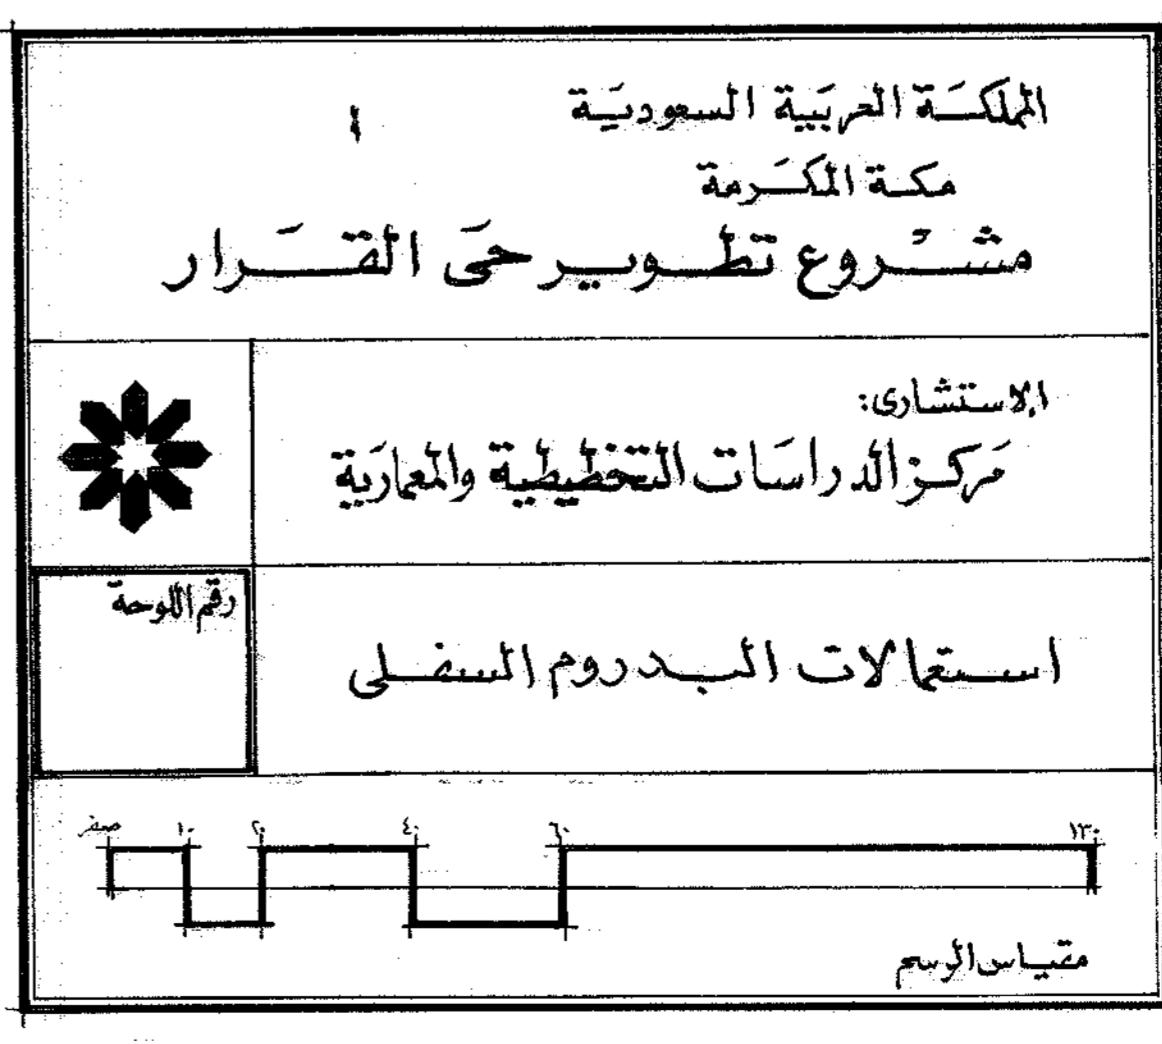 المملكة العربية السعودية
مكة المكرمة
مشروع تطوير حى القرار
الإستشارى:
مركز الدراسات التخطيطية والمعمارية
رقم اللوحة
استعمالات البدروم السفلى
صفر ١٠ ٢٠ ٤٠ ٦٠ ١٣٠
مقياس الرسم